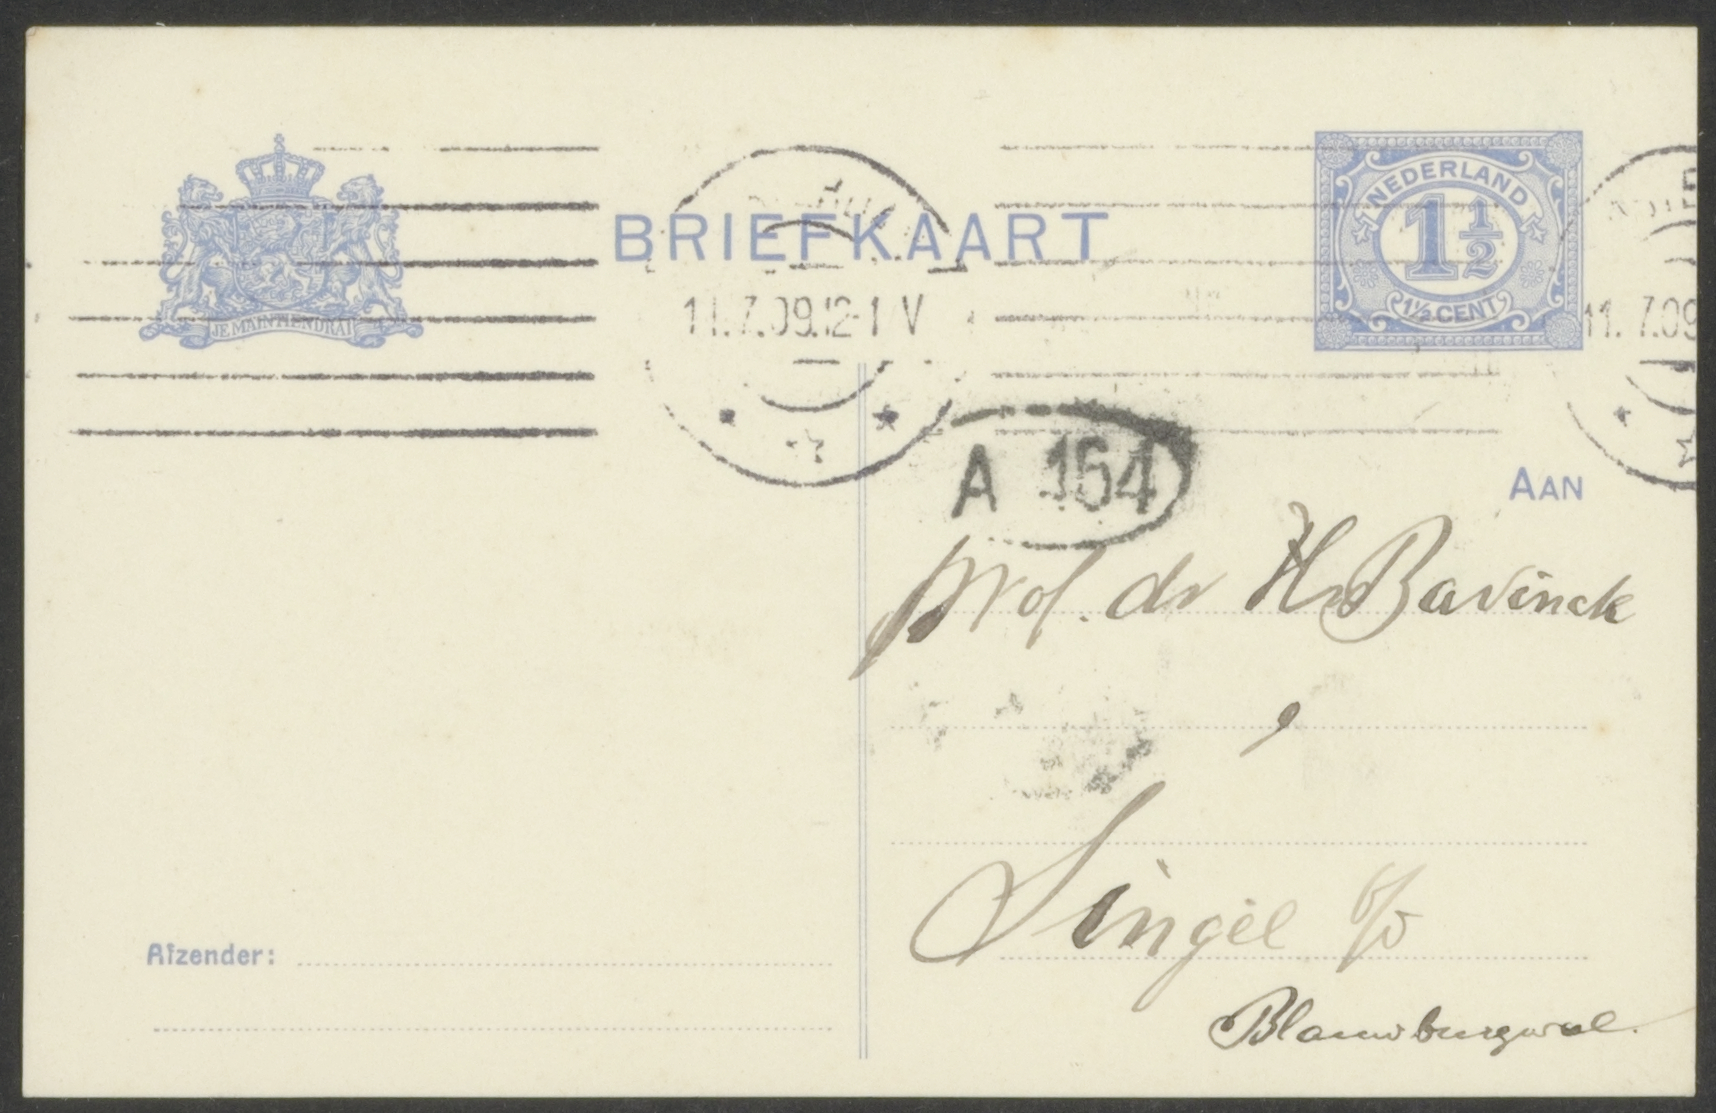 JE MAINTIENDRAI
BRIEFKAART
NEDERLAND
1 1/2
1½ CENT
11.7.09.12-1 V
11. 7.09
A 164
AAN
prof. dr H. Bavinck
Singel b/d
Blauwburgwal.
Afzender: